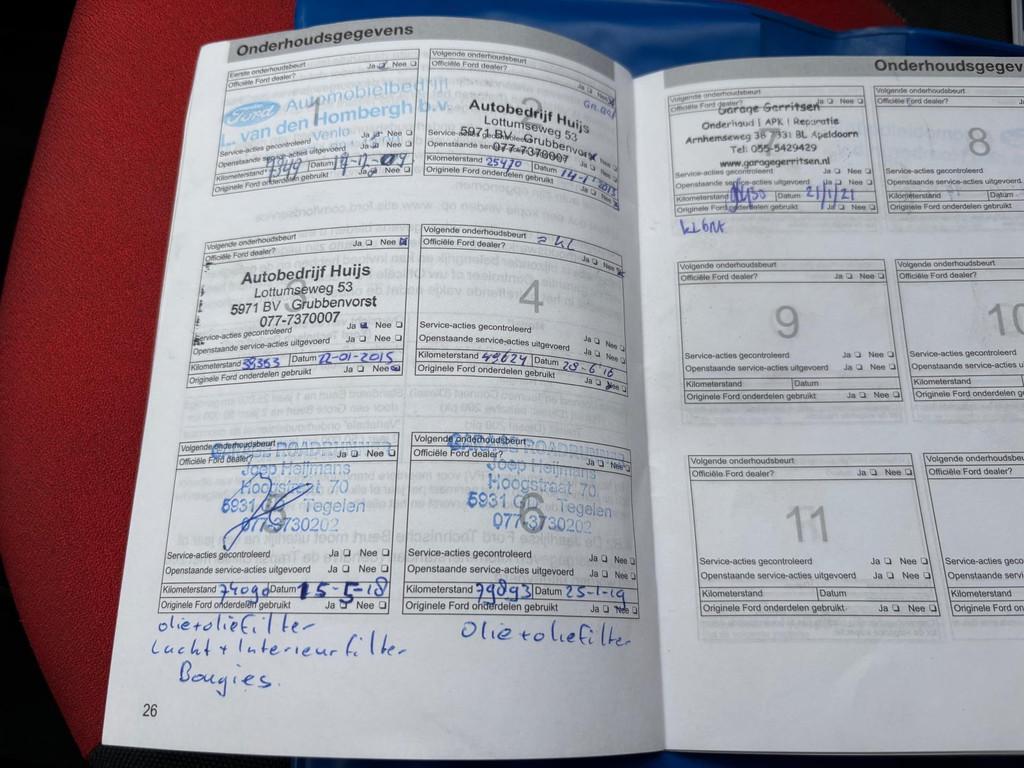 Onderhoudsgegevens
Eerste onderhoudsbeurt Ja Nee
Officiële Ford dealer?
Ford Automobielbedrijf
L. van den Hombergh b.v.
Venlo
1
Service-acties gecontroleerd Ja Nee
Openstaande service-acties uitgevoerd Ja Nee
Kilometerstand Datum
Originele Ford onderdelen gebruikt Ja Nee
Volgende onderhoudsbeurt
Officiële Ford dealer? Ja Nee
2
Autobedrijf Huijs
Lottumseweg 53
5971 BV Grubbenvorst
077-7370007
Kilometerstand 25470 Datum
Originele Ford onderdelen gebruikt Ja Nee
Volgende onderhoudsbeurt
Officiële Ford dealer? Ja Nee
3
Autobedrijf Huijs
Lottumseweg 53
5971 BV Grubbenvorst
077-7370007
Service-acties gecontroleerd Ja Nee
Openstaande service-acties uitgevoerd Ja Nee
Kilometerstand 38353 Datum 22-01-2015
Originele Ford onderdelen gebruikt Ja Nee
Volgende onderhoudsbeurt
Officiële Ford dealer? Ja Nee
4
Service-acties gecontroleerd Ja Nee
Openstaande service-acties uitgevoerd Ja Nee
Kilometerstand 49624 Datum 28-6-16
Originele Ford onderdelen gebruikt Ja Nee
Volgende onderhoudsbeurt
Officiële Ford dealer? Ja Nee
Joep Heijmans
Hoogstraat 70
5931 Tegelen
077-3730202
Service-acties gecontroleerd Ja Nee
Openstaande service-acties uitgevoerd Ja Nee
Kilometerstand Datum 15-5-18
Originele Ford onderdelen gebruikt Ja Nee
olie+oliefilter
Lucht + Interieurfilter
Bougies.
Volgende onderhoudsbeurt
Officiële Ford dealer? Ja Nee
6
Joep Heijmans
Hoogstraat 70
5931 Tegelen
077-3730202
Service-acties gecontroleerd Ja Nee
Openstaande service-acties uitgevoerd Ja Nee
Kilometerstand 79893 Datum 25-1-19
Originele Ford onderdelen gebruikt Ja Nee
Olie+oliefilter
26
Onderhoudsgegev
Volgende onderhoudsbeurt
Officiële Ford dealer? Ja Nee
Garage Gerritsen
Onderhoud | APK | Reparatie
Arnhemseweg 38 7331 BL Apeldoorn
Tel: 055-5429429
www.garagegerritsen.nl
Service-acties gecontroleerd Ja Nee
Openstaande service-acties uitgevoerd Ja Nee
Kilometerstand Datum 21/1/21
Originele Ford onderdelen gebruikt Ja Nee
Volgende onderhoudsbeurt
Officiële Ford dealer?
8
Service-acties gecontroleerd
Openstaande service-acties uitgevoerd
Kilometerstand Datum
Originele Ford onderdelen gebruikt
Volgende onderhoudsbeurt
Officiële Ford dealer? Ja Nee
9
Service-acties gecontroleerd Ja Nee
Openstaande service-acties uitgevoerd Ja Nee
Kilometerstand Datum
Originele Ford onderdelen gebruikt Ja Nee
Volgende onderhoudsbeurt
Officiële Ford dealer?
10
Service-acties gecontroleerd
Openstaande service-acties u
Kilometerstand
Originele Ford onderdelen
Volgende onderhoudsbeurt
Officiële Ford dealer? Ja Nee
11
Service-acties gecontroleerd Ja Nee
Openstaande service-acties uitgevoerd Ja Nee
Kilometerstand Datum
Originele Ford onderdelen gebruikt Ja Nee
Volgende onderhoudsbeu
Officiële Ford dealer?
Service-acties gecon
Openstaande servic
Kilometerstand
Originele Ford on